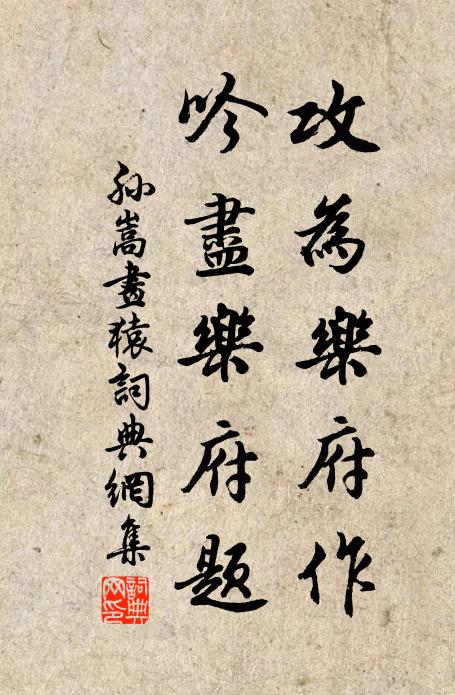 攻為樂府作
吟盡樂府題
孫嵩畫猿詞典網集
詞典網印